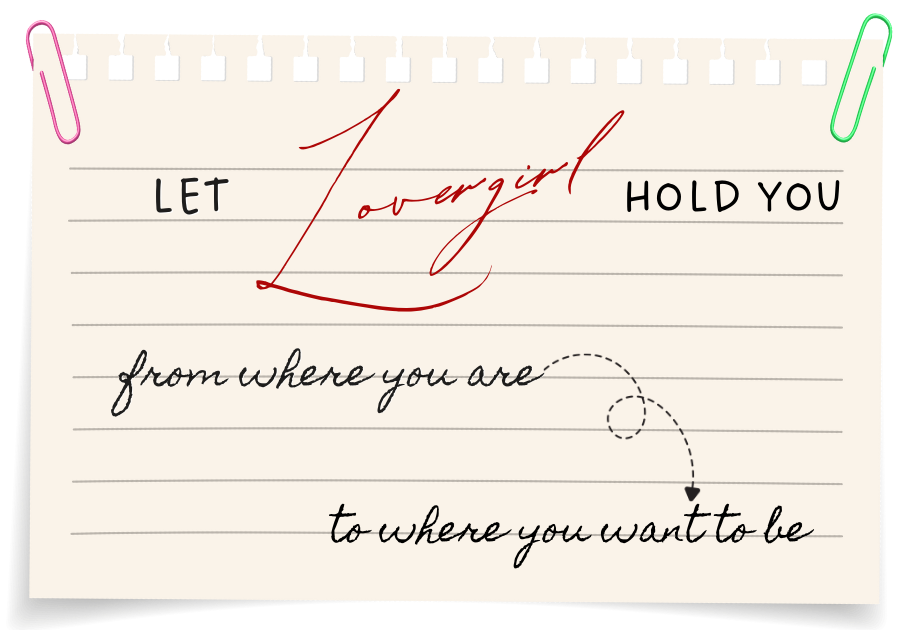 LET Lovergirl HOLD YOU
from where you are
to where you want to be